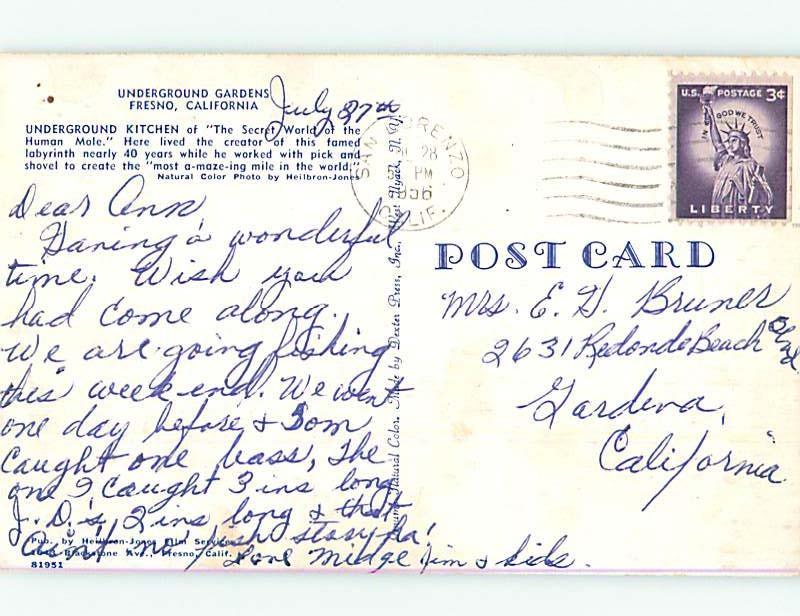 UNDERGROUND GARDENS
FRESNO, CALIFORNIA
July 27th
UNDERGROUND KITCHEN of "The Secret World of the
Human Mole." Here lived the creator of this famed
labyrinth nearly 40 years while he worked with pick and
shovel to create the "most a-maze-ing mile in the world."
Natural Color Photo by Heilbron-Jones
Dear Ann,
Having a wonderful
time. Wish you
had come along.
We are going fishing
this week-end. We went
one day before &
caught one bass, The
one I caught 3 ins long
J. D.'s 2 ins long & that
Ain't no fish story Ha!
Love Midge Jim & kids.
Pub. by Heilbron-Jones Film Service
Blackstone Ave., Fresno, Calif.
81951
Natural Color. Made by Dexter Press, Inc., West Nyack, N. Y.
SAN LORENZO
28
PM
1956
CALIF.
U.S. POSTAGE 3¢
IN GOD WE TRUST
LIBERTY
POST CARD
Mrs. E. G. Bruner
2631 Redondo Beach Blvd
Gardena,
California